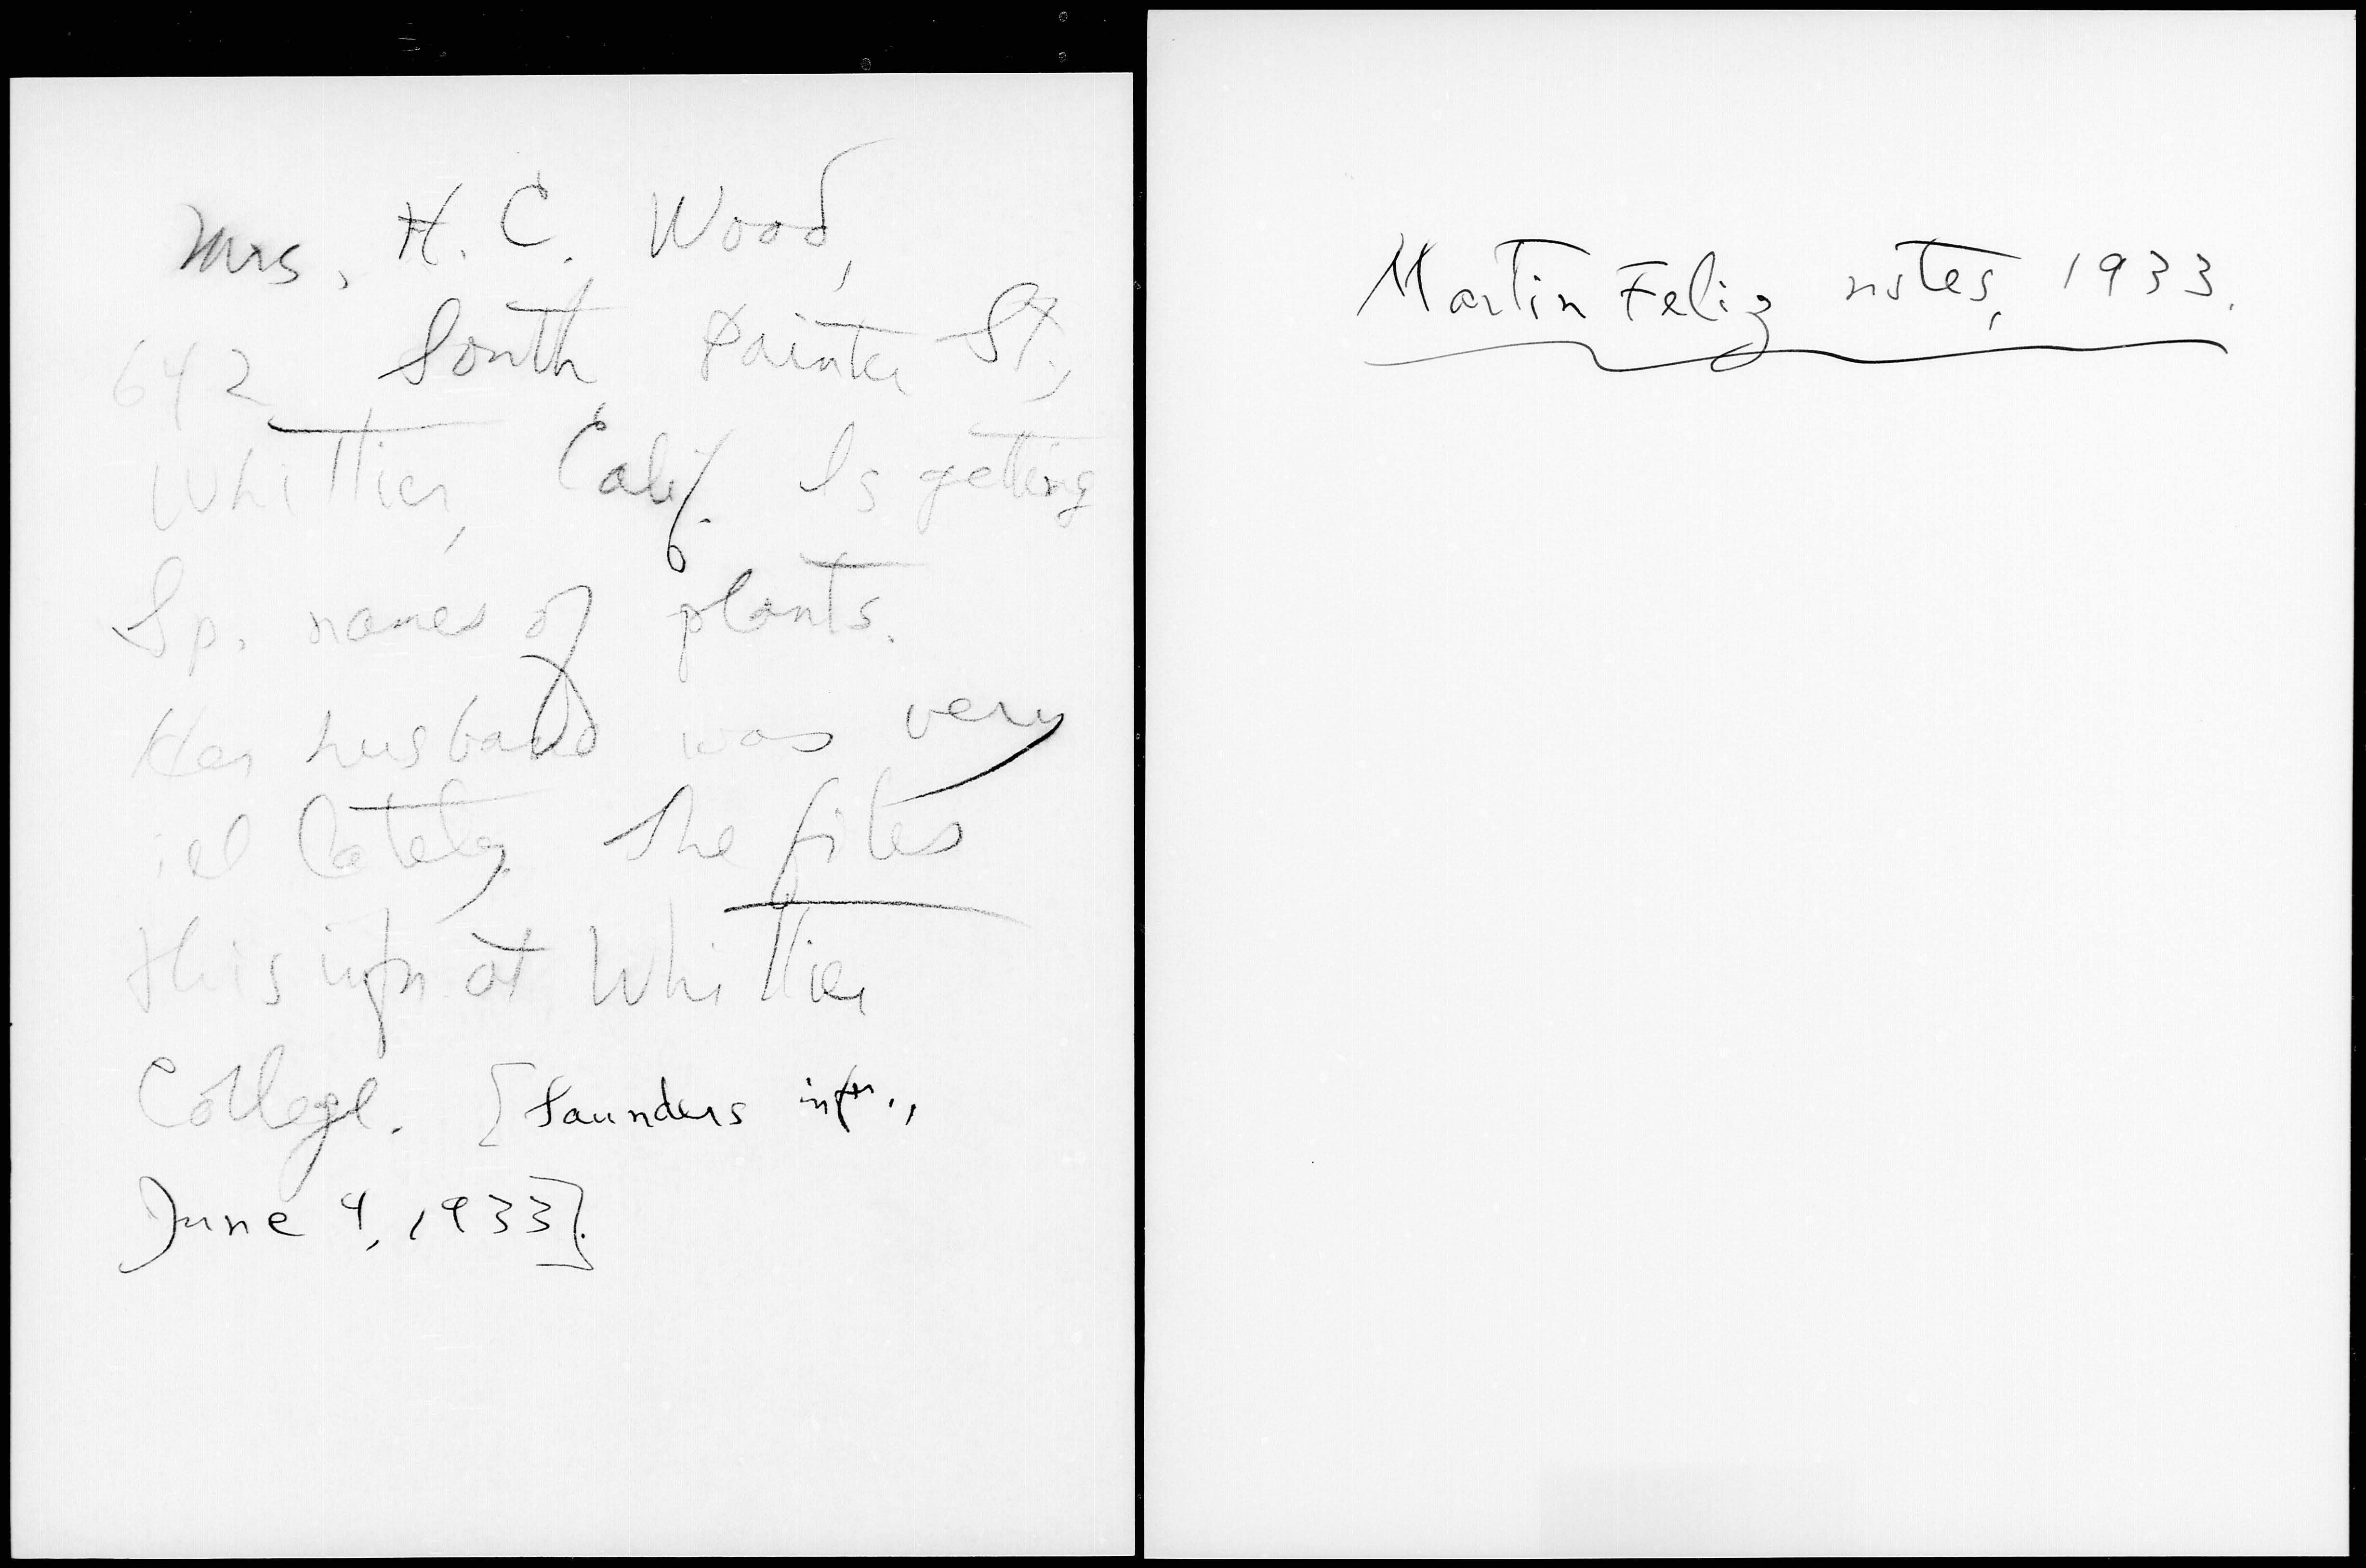 Mrs. H. C. Wood,
642 South Painter St.,
Whittier, Calif. Is getting
Sp. names of plants.
Her husband was very
ill lately. She files
this infn at Whittier
College. [Saunders infn.,
June 4, 1933].
Martin Feliz notes, 1933.